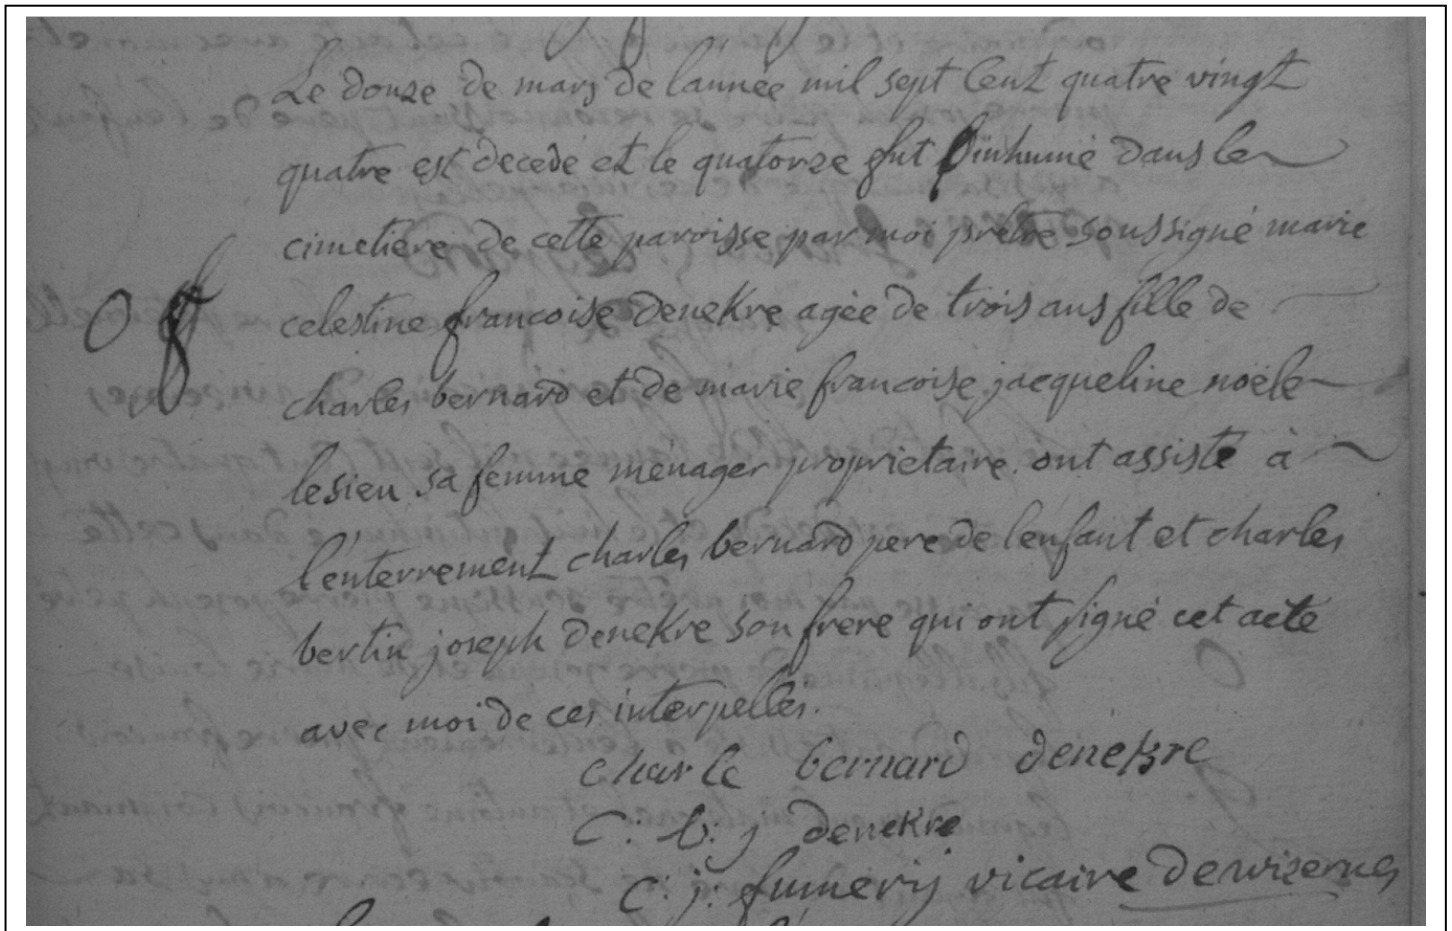 Le douze de mars de lannée mil sept Cent quatre vingt
quatre est decedé et le quatorze fut inhumé dans le
cimetiére de cette paroisse par moi prêtre soussigné marie
celestine francoise deneKre agée de trois ans fille de
O
charles bernard et de marie francoise jacqueline noële
lesieu sa femme ménager proprietaire. ont assisté à
l'enterrement charles bernard pere de lenfant et charles
bertin joseph deneKre son frere qui ont signé cet acte
avec moi de ces interpellés.
charle bernard denekre
C: b: j deneKre
C: j: fumerij vicaire de wizernes